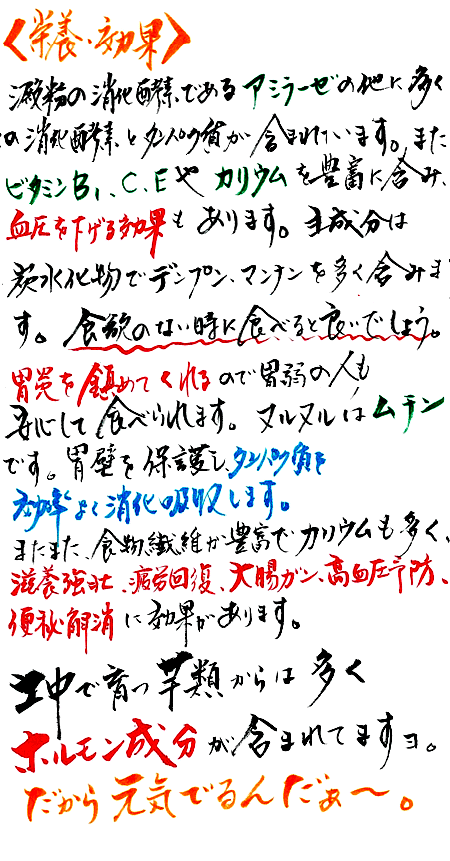 〈栄養・効果〉
澱粉の消化酵素であるアミラーゼの他に多く
の消化酵素とタンパク質が含まれています。また
ビタミンB1、C、Eやカリウムを豊富に含み、
血圧を下げる効果もあります。主成分は
炭水化物でデンプン、マンナンを多く含みま
す。食欲のない時に食べると良いでしょう。
胃炎を鎮めてくれるので胃弱の人も
安心して食べられます。ヌルヌルはムチン
です。胃壁を保護し、タンパク質を
効率よく消化吸収します。
またまた、食物繊維が豊富でカリウムも多く、
滋養強壮、疲労回復、大腸ガン、高血圧予防、
便秘解消に効果があります。
土中で育つ芋類からは多く
ホルモン成分が含まれてますヨ。
だから元気でるんだぁ〜。